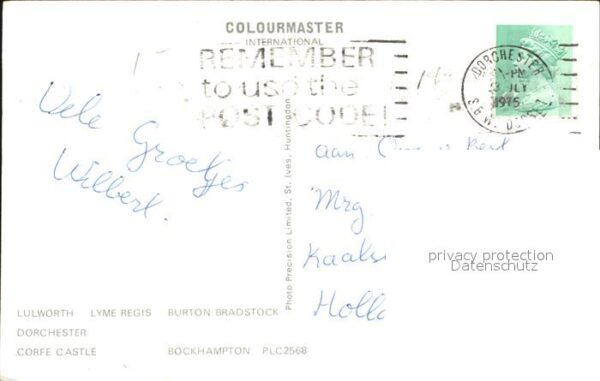 COLOURMASTER
INTERNATIONAL
REMEMBER
to use the
POST CODE!
DORCHESTER
-PM
JLY
1975
Vele Groetjes
Wilbert.
aan
Mrg
Holl
privacy protection
Datenschutz
Photo Precision Limited, St. Ives, Huntingdon
LULWORTH LYME REGIS BURTON BRADSTOCK
DORCHESTER
CORFE CASTLE BOCKHAMPTON PLC2568